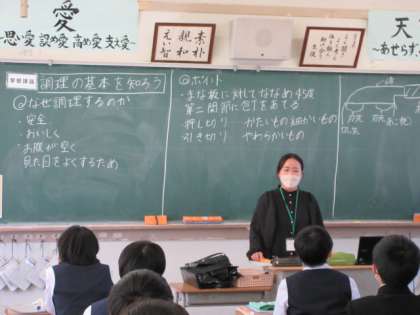 愛
思い愛 認め愛 高め愛 支え愛
素朴
親和
えい智
天
～あせらず
学習課題 調理の基本を知ろう
◎なぜ調理するのか
・安全
・おいしく
・お腹が空く
見た目をよくするため
◎ポイント
・まな板に対してななめ45度
第二関節に包丁をあてる
押し切り… かたいもの 細かいもの
引き切り… やわらかいもの